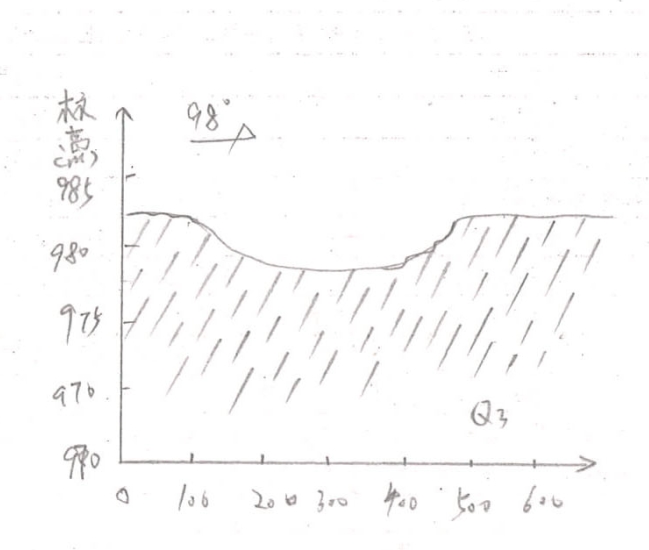 标
高
(m)
98°
985
980
975
970
Q3
0 100 200 300 400 500 600